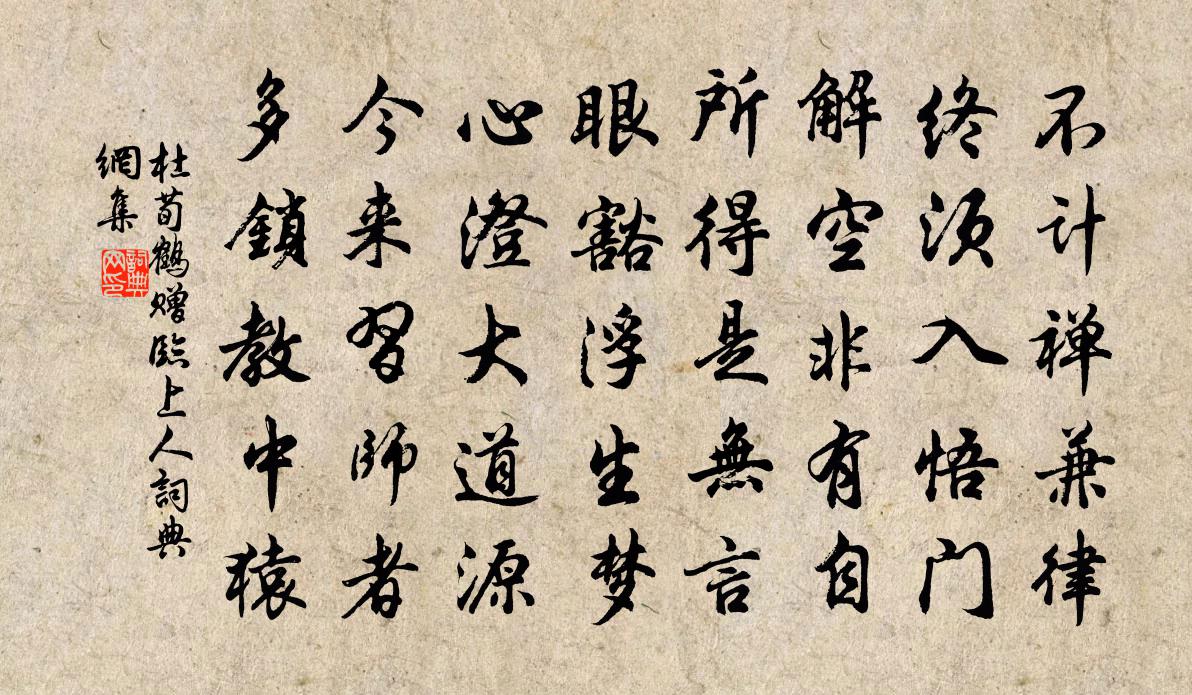 不计禅兼律
终须入悟门
解空非有自
所得是無言
眼豁浮生梦
心澄大道源
今来習師者
多鎖教中猿
杜荀鹤赠臨上人詞典
網集
詞典
网印